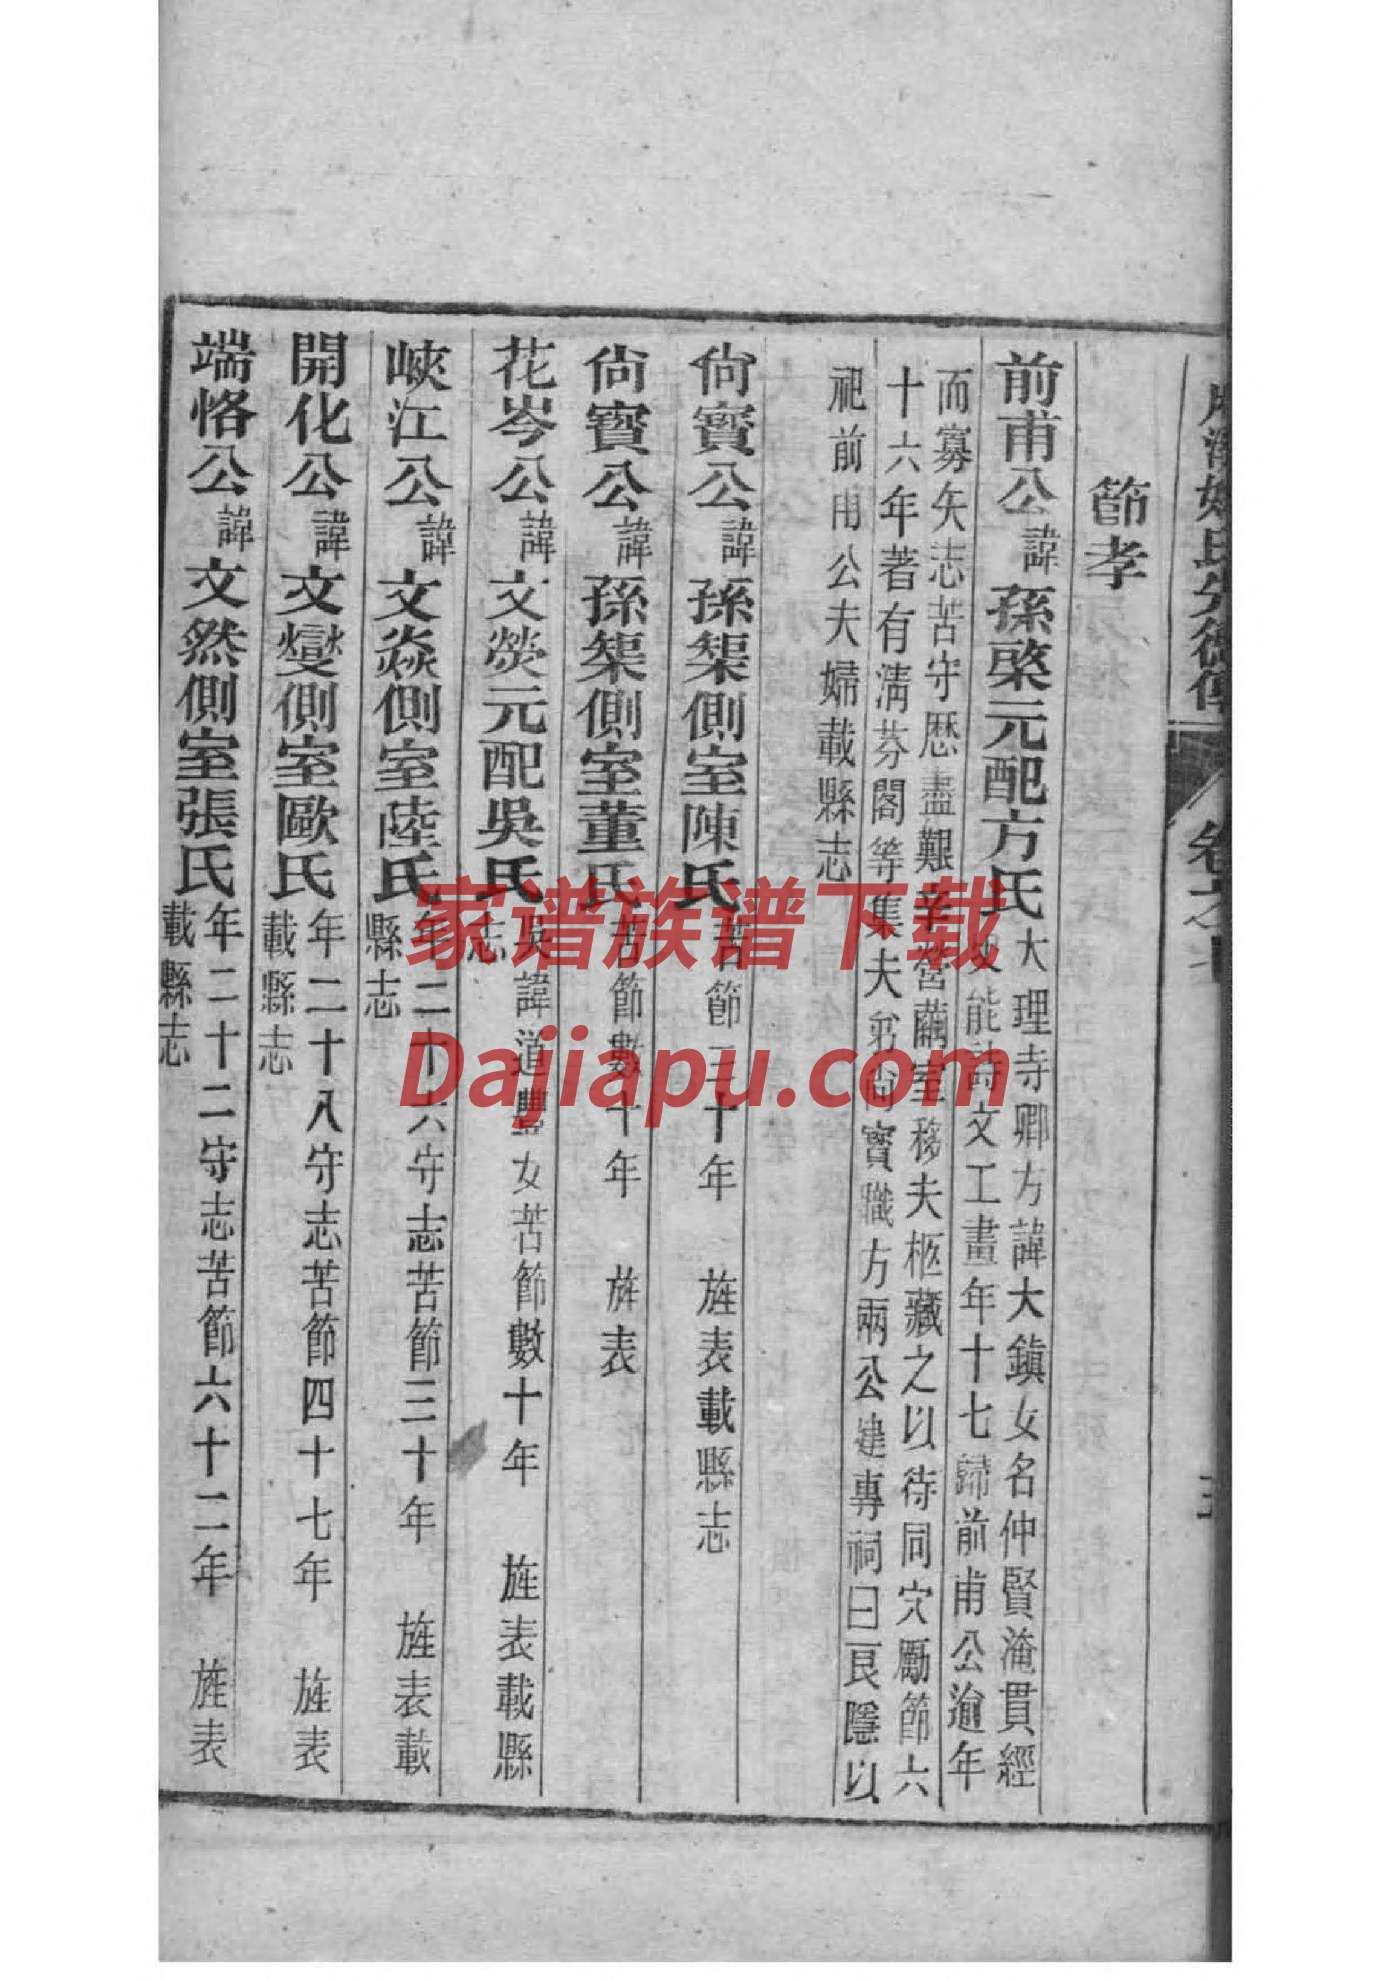 節孝
前甫公諱孫棨元配方氏大理寺卿方諱大鎮女名仲賢淹貫經
史能詩文工畫年十七歸前甫公逾年
而寡矢志苦守歷盡艱辛營繭室移夫柩藏之以待同穴勵節六
十六年著有清芬閣等集夫弟尙寳職方兩公建專祠曰艮隱以
祀前甫公夫婦載縣志
尙寳公諱孫榘側室陳氏苦節三十年 旌表載縣志
尙寳公諱孫榘側室董氏苦節數十年 旌表
花岑公諱文熒元配吳氏吳諱道豐女苦節數十年 旌表載縣
志
峽江公諱文焱側室陸氏年二十六守志苦節三十年 旌表載
縣志
開化公諱文燮側室歐氏年二十八守志苦節四十七年 旌表
載縣志
端恪公諱文然側室張氏年二十二守志苦節六十二年 旌表
載縣志
家谱族谱下载
Dajiapu.com